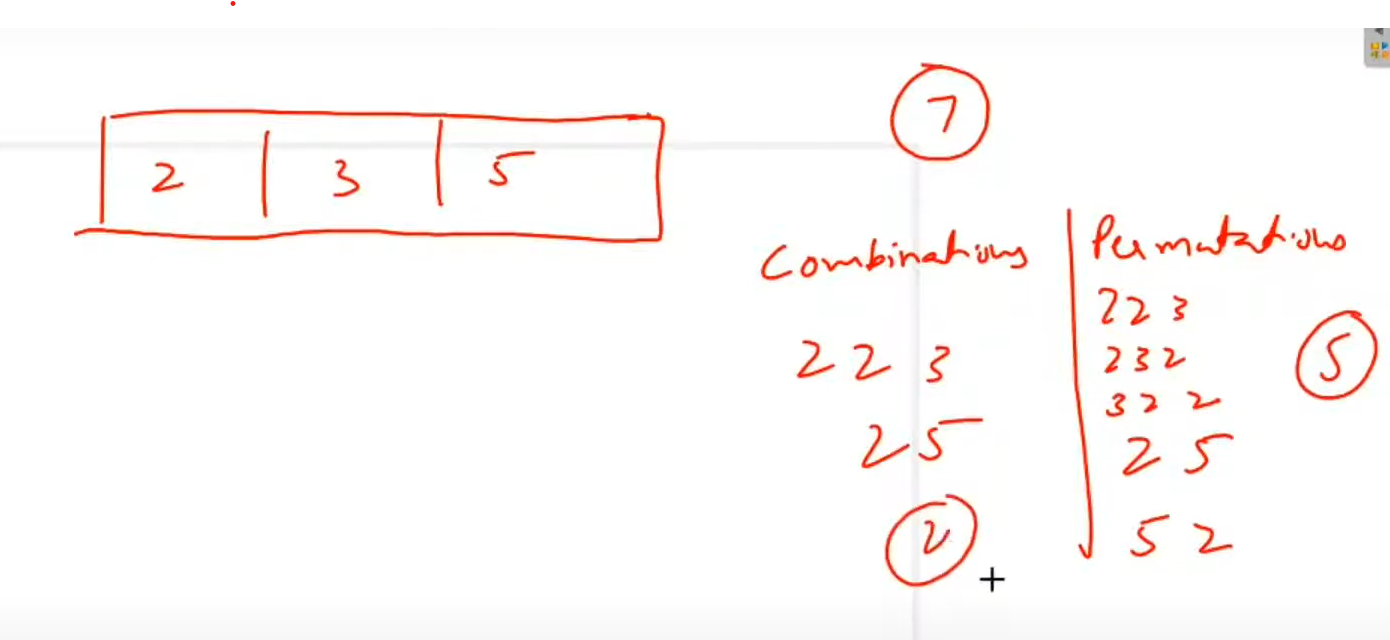 2 | 3 | 5
7
Combinations
2 2 3
2 5
2
Permutations
2 2 3
2 3 2
3 2 2
2 5
5 2
5